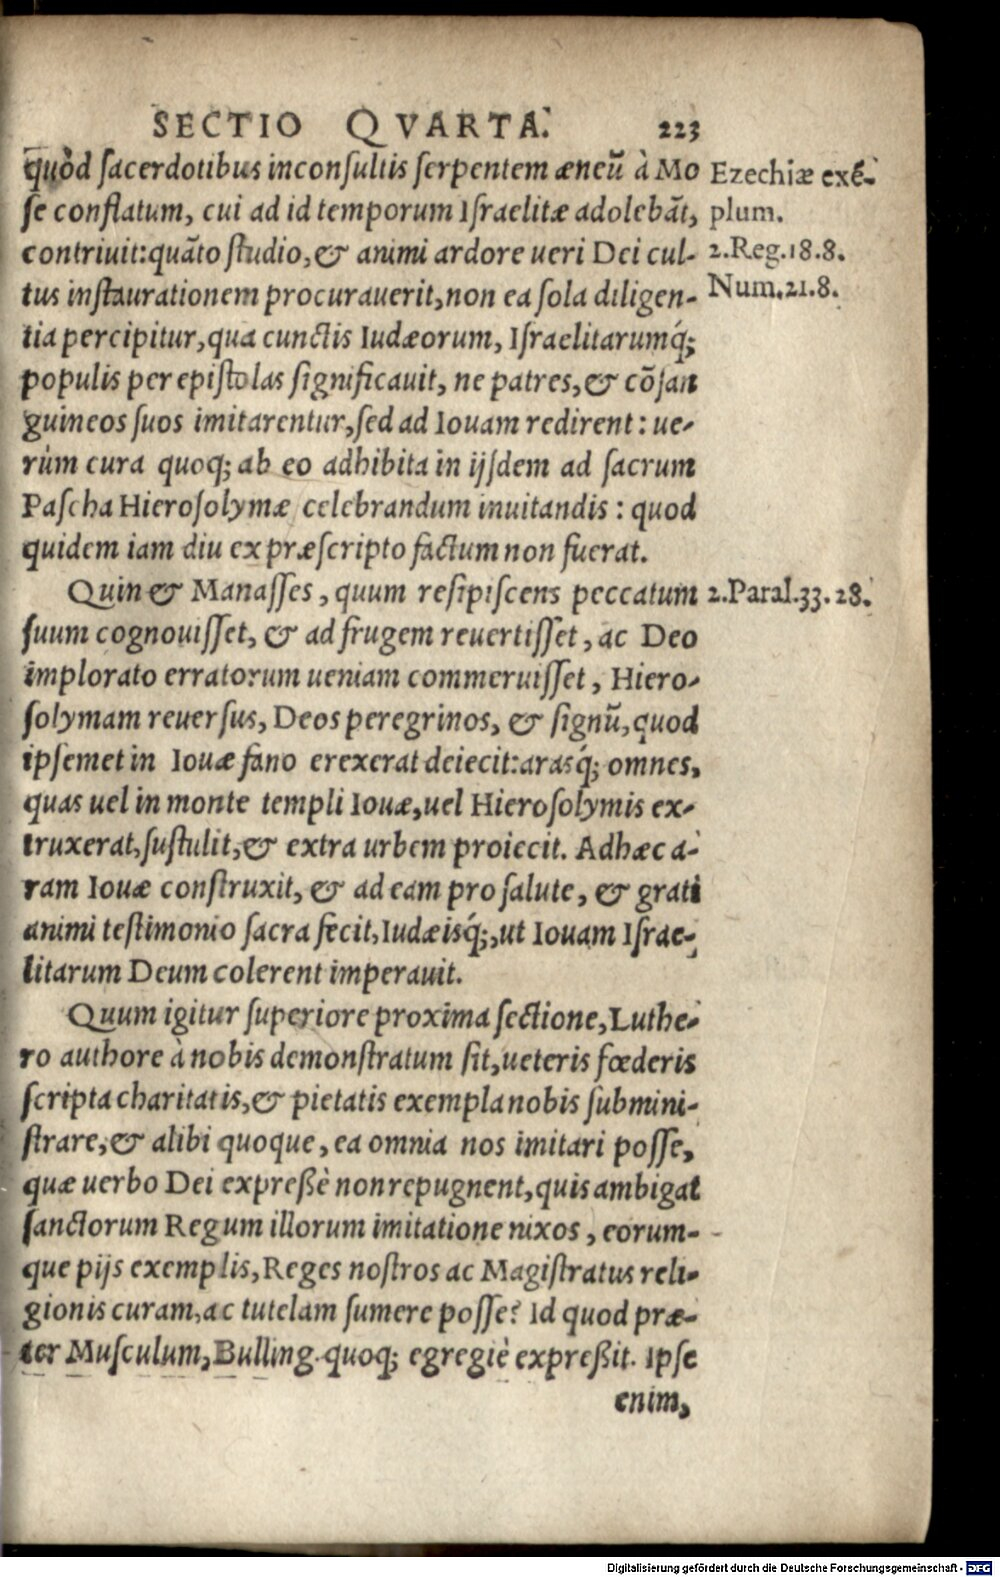 SECTIO QVARTA. 223
quòd sacerdotibus inconsultis serpentem æneũ à Mo
se conflatum, cui ad id temporum Israelitæ adolebãt,
contriuit: quãto studio, & animi ardore ueri Dei cul-
tus instaurationem procurauerit, non ea sola diligen-
tia percipitur, qua cunctis Iudæorum, Israelitarumq́;
populis per epistolas significauit, ne patres, & cõsan
guineos suos imitarentur, sed ad Iouam redirent: ue-
rùm cura quoq; ab eo adhibita in ijsdem ad sacrum
Pascha Hierosolymæ celebrandum inuitandis: quod
quidem iam diu ex præscripto factum non fuerat.
Ezechiæ exẽ-
plum.
2. Reg. 18. 8.
Num. 21. 8.
Quin & Manasses, quum resipiscens peccatum
suum cognouisset, & ad frugem reuertisset, ac Deo
implorato erratorum ueniam commeruisset, Hiero-
solymam reuersus, Deos peregrinos, & signũ, quod
ipsemet in Iouæ fano erexerat deiecit: arasq́; omnes,
quas uel in monte templi Iouæ, uel Hierosolymis ex-
truxerat, sustulit, & extra urbem proiecit. Adhæc a-
ram Iouæ construxit, & ad eam pro salute, & grati
animi testimonio sacra fecit, Iudæisq́;, ut Iouam Israe-
litarum Deum colerent imperauit.
2. Paral. 33. 28.
Quum igitur superiore proxima sectione, Luthe-
ro authore à nobis demonstratum sit, ueteris fœderis
scripta charitatis, & pietatis exempla nobis submini-
strare, & alibi quoque, ea omnia nos imitari posse,
quæ uerbo Dei expreßè non repugnent, quis ambigat
sanctorum Regum illorum imitatione nixos, eorum-
que pijs exemplis, Reges nostros ac Magistratus reli-
gionis curam, ac tutelam sumere posse? Id quod præ-
ter Musculum, Bulling. quoq; egregiè expreßit. Ipse
enim,
Digitalisierung gefördert durch die Deutsche Forschungsgemeinschaft - DFG